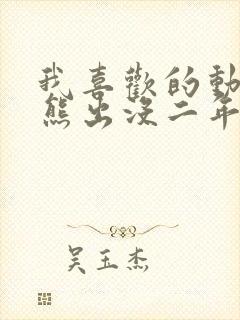 我喜歡的動
熊出沒二年
吴玉杰